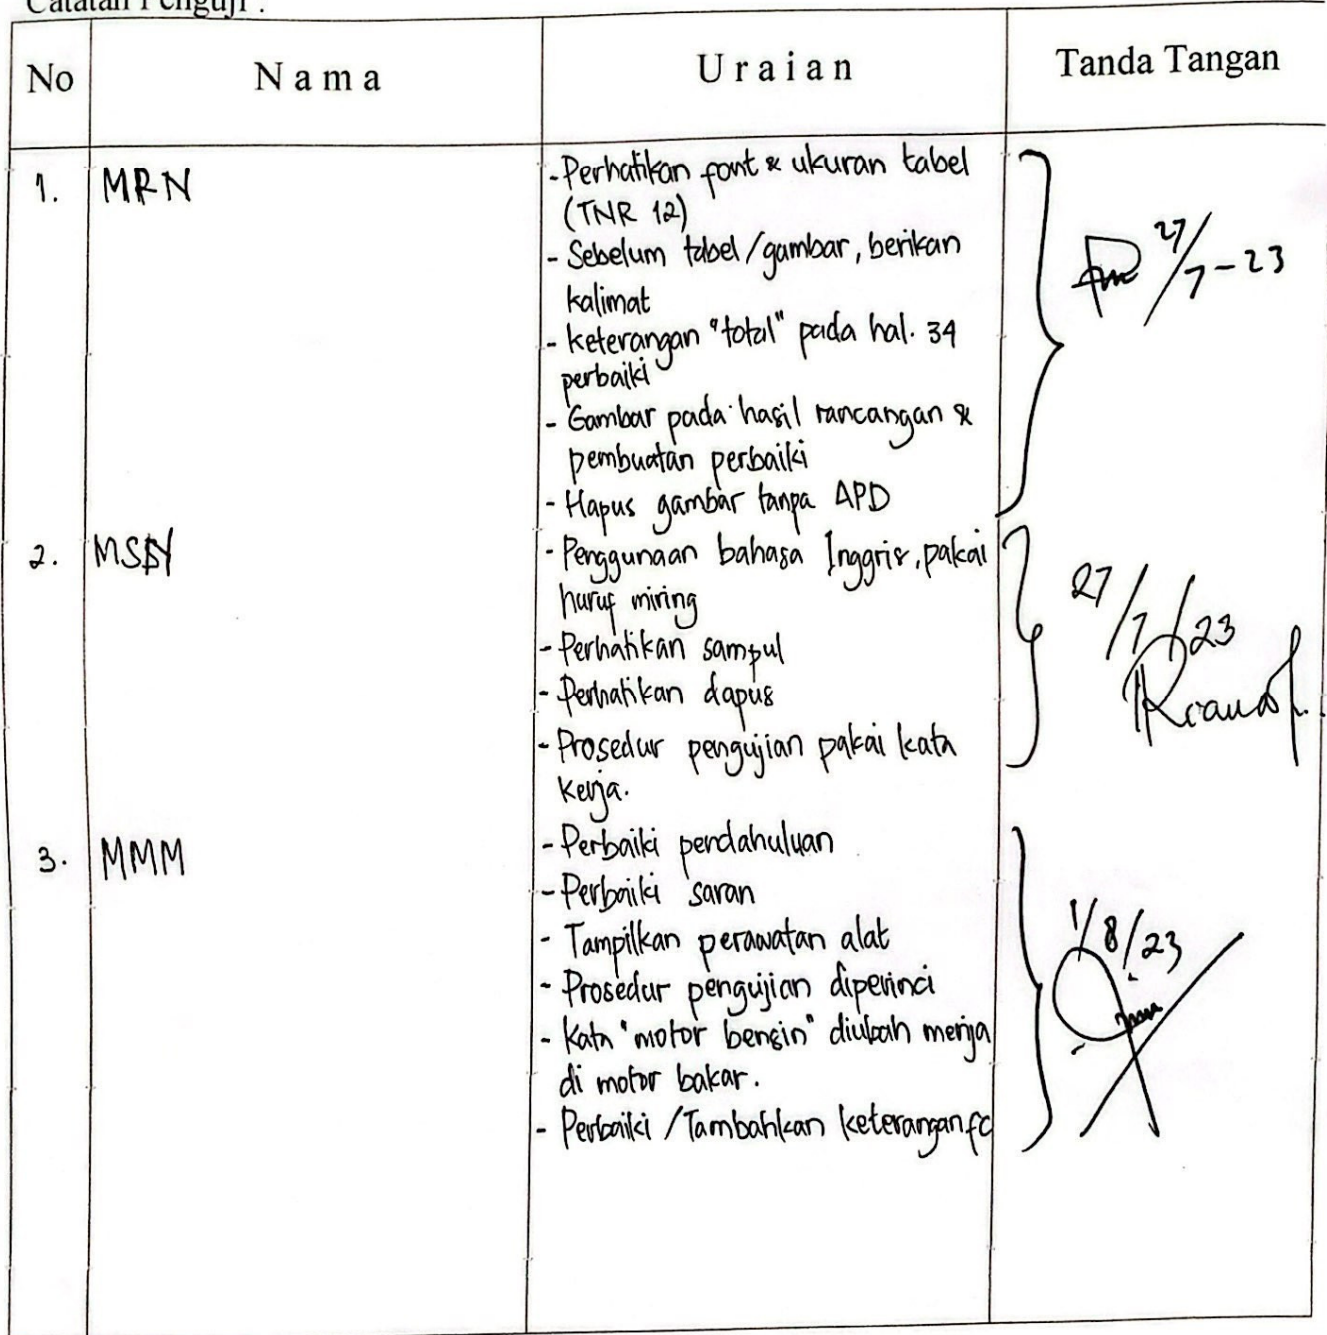 Catatan Penguji :
No Nama Uraian Tanda Tangan
1. MRN
- Perhatikan font & ukuran tabel
(TNR 12)
- Sebelum tabel/gambar, berikan
kalimat
- keterangan "total" pada hal. 34
perbaiki
- Gambar pada hasil rancangan &
pembuatan perbaiki
- Hapus gambar tanpa APD
27/7-23
2. MSN
- Penggunaan bahasa Inggris, pakai
huruf miring
- Perhatikan sampul
- Perhatikan dapus
- Prosedur pengujian pakai kata
kerja.
27/7/23
3. MMM
- Perbaiki pendahuluan
- Perbaiki saran
- Tampilkan perawatan alat
- Prosedur pengujian diperinci
- Kata "motor bensin" diubah menja
di motor bakar.
- Perbaiki /Tambahkan keterangan fc
1/8/23